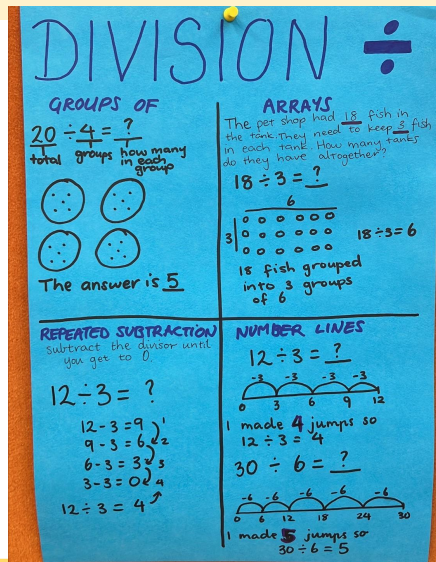 DIVISION ÷
GROUPS OF
20 ÷ 4 = ?
total groups how many
in each
group
The answer is 5
ARRAYS
The pet shop had 18 fish in
the tank. They need to keep 3 fish
in each tank. How many tanks
do they have altogether?
18 ÷ 3 = ?
6
3
18 ÷ 3 = 6
18 fish grouped
into 3 groups
of 6
REPEATED SUBTRACTION
subtract the divisor until
you get to 0.
12 ÷ 3 = ?
12 - 3 = 9 1
9 - 3 = 6 2
6 - 3 = 3 3
3 - 3 = 0 4
12 ÷ 3 = 4
NUMBER LINES
12 ÷ 3 = ?
-3 -3 -3 -3
0 3 6 9 12
I made 4 jumps so
12 ÷ 3 = 4
30 ÷ 6 = ?
-6 -6 -6 -6 -6
0 6 12 18 24 30
I made 5 jumps so
30 ÷ 6 = 5